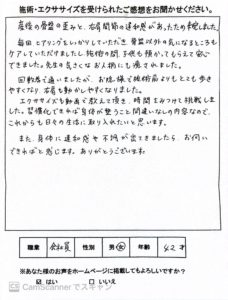 施術・エクササイズを受けられたご感想をお聞かせください。
産後の骨盤の歪みと、右肩関節の違和感があったため来院しました。
毎回ヒアリングをしっかりしていただき、骨盤以外の気になるところも
ケアしていただけましたし、施術の間、子供も預かってもらえて安心
できました。先生の気さくなお人柄にも癒されました。
回数券で通いましたが、お陰様で施術前よりもとても歩き
やすくなり、右肩も動かしやすくなりました。
エクササイズも動画で教えて頂き、時間をみつけて挑戦しま
した。習慣化できれば身体が整うこと間違いなしの内容なので、
これからも日々の生活に取り入れたいと思います。
また、身体に違和感や不調が出てきましたら、お伺い
できればと感じます。ありがとうございます。
職業 会社員 性別 男・女 年齢 42才
※あなた様のお声をホームページに掲載してもよろしいですか？
☑ はい □ いいえ
CS CamScannerでスキャン